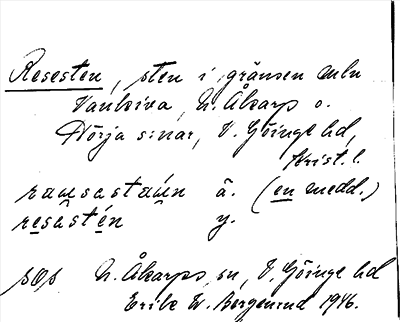 Resesten, sten i gränsen mln
Vankiva, N. Åkarps o.
Nörja s:nar, V. Göinge hd,
Krist. l.
ramsastaı́n ä. (en medd.)
resastén y.
sOs N. Åkarps sn, V. Göinge hd
Erik W. Bergenrud 1946.